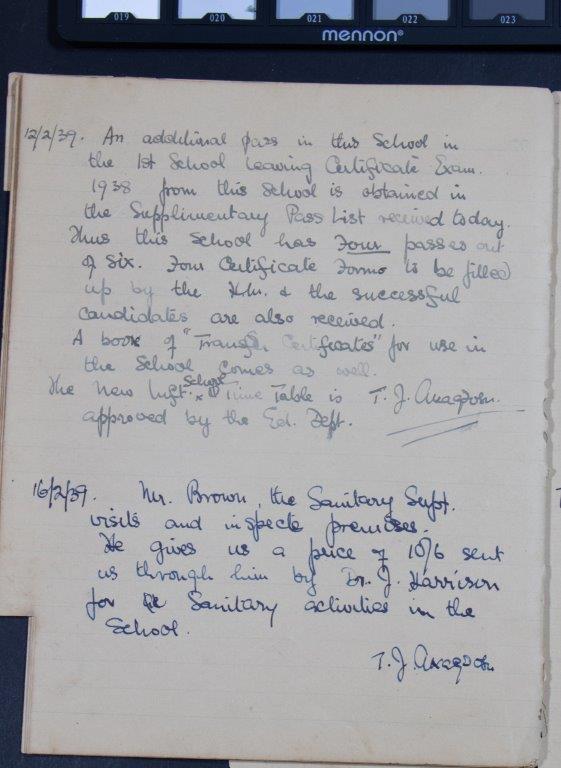 019 020 021 022 023
mennon®
12/2/39. An additional pass in this School in
the 1st School Leaving Certificate Exam.
1938 from this School is obtained in
the Supplimentary Pass List received today.
Thus this School has Four passes out
of Six. Four Certificate Forms to be filled
up by the H.M. & the successful
candidates are also received.
A book of "Transfer Certificates" for use in
the School comes as well.
The New School Time Table is T. J.
approved by the Ed. Dept.
16/2/39. Mr. Brown, the Sanitary Supt.
visits and inspects premises.
He gives us a price of 10/6 sent
us through him by Dr. J. Harrison
for Sanitary activities in the
School.
T. J.